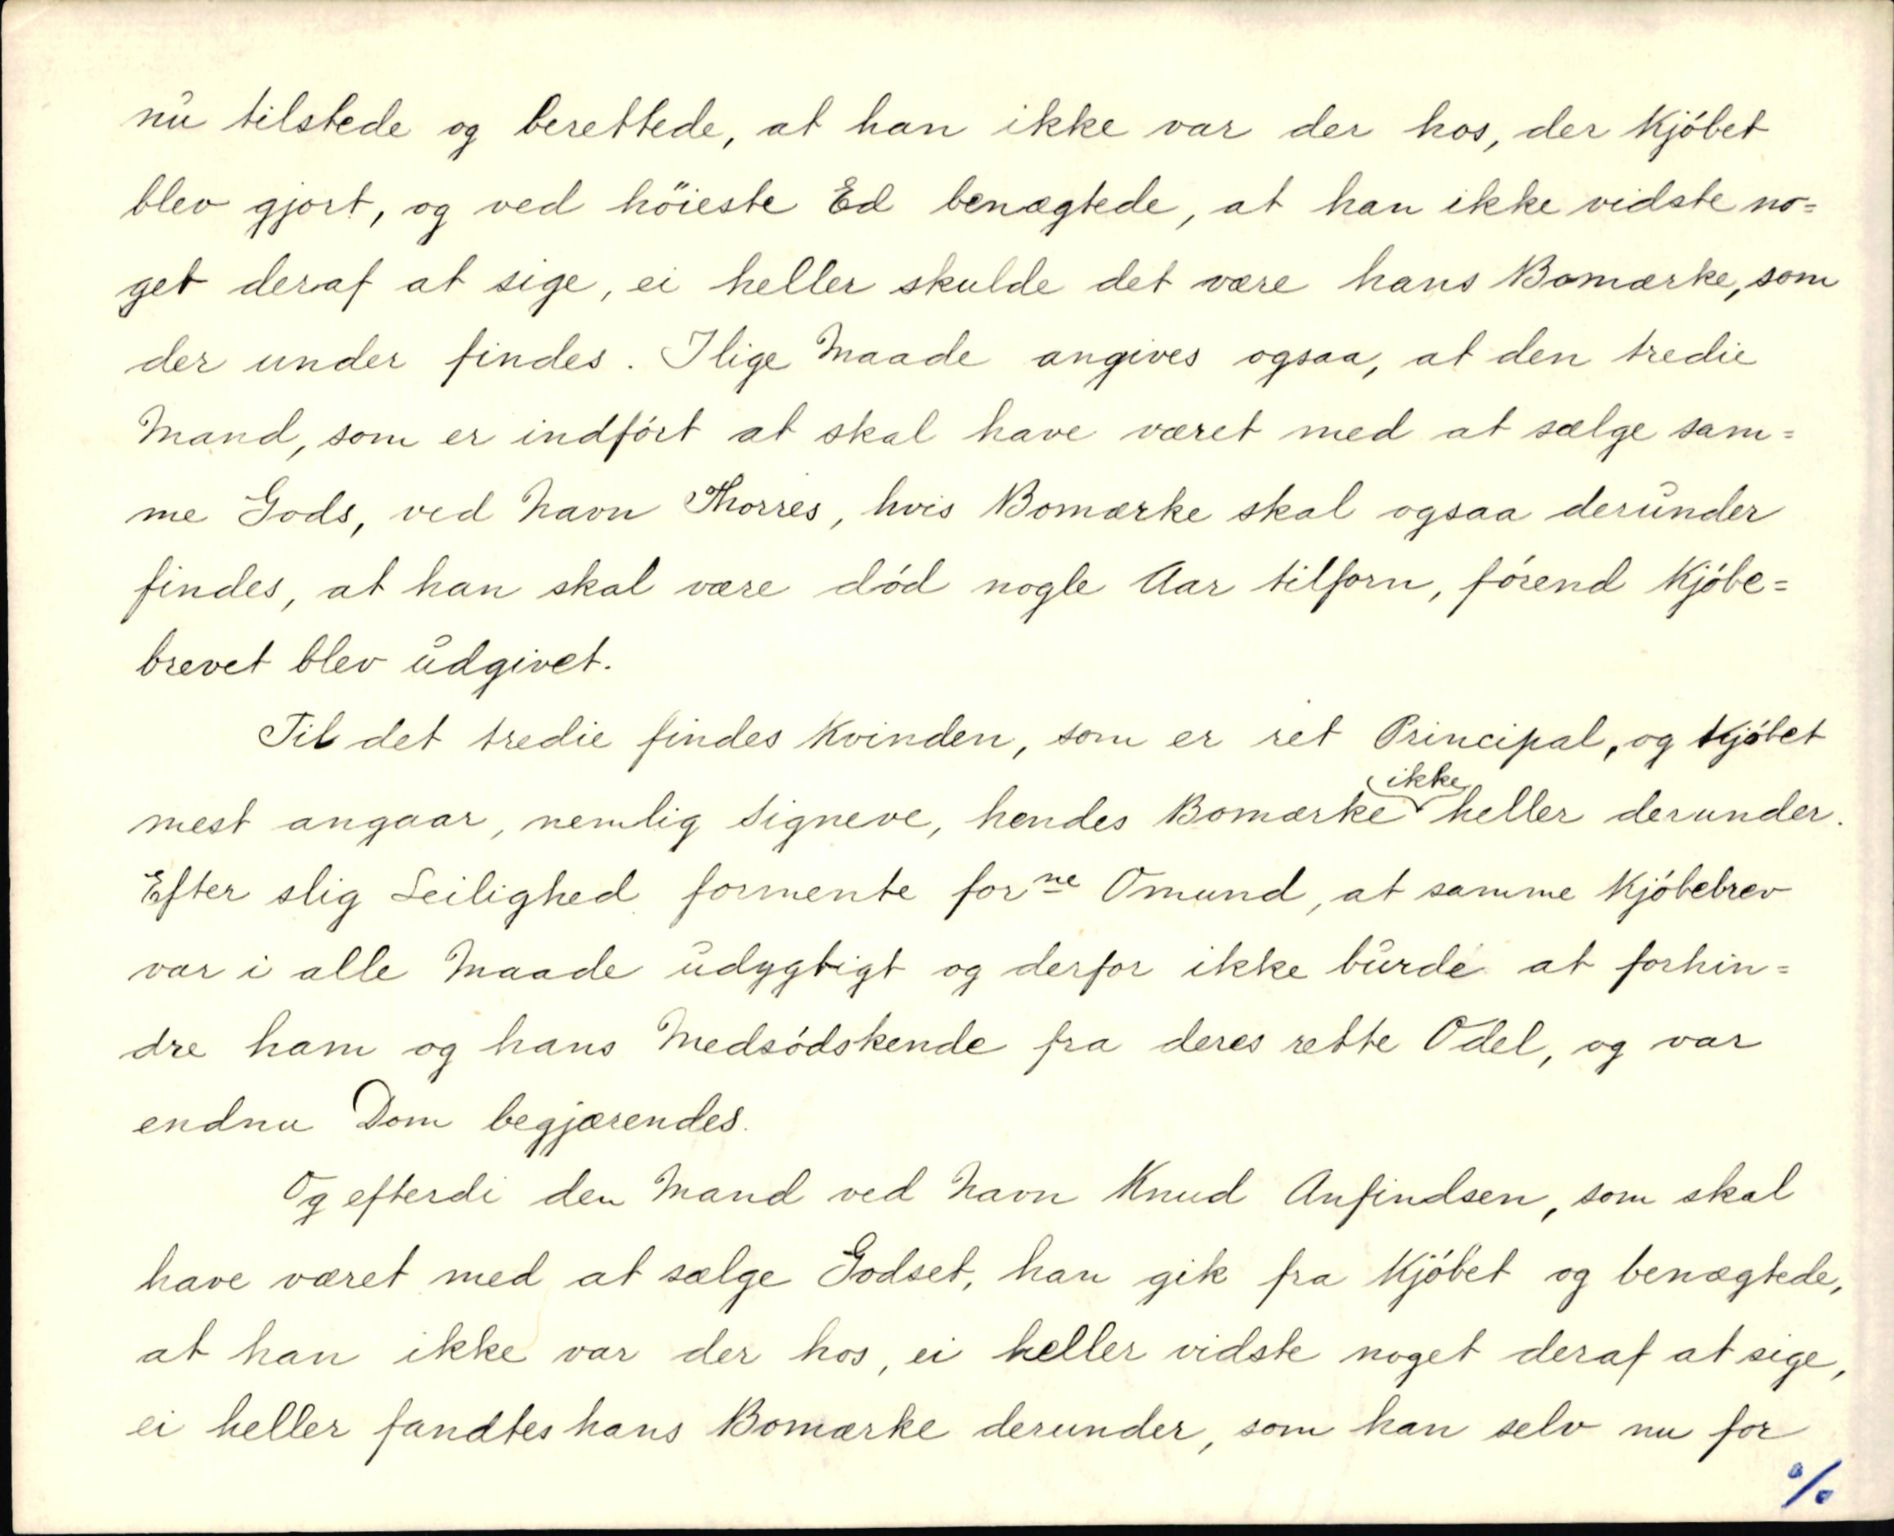 nu tilstede og berettede, at han ikke var der hos, der Kjóbet
blev gjort, og ved höieste Ed benægtede, at han ikke vidste no=
get deraf at sige, ei heller skulde det være hans Bomærke, som
der under findes. Ilige Maade angives ogsaa, at den tredie
Mand, som er indfórt at skal have været med at sælge sam=
me Gods, ved Navn Thorres, hvis Bomærke skal ogsaa derunder
findes, at han skal være dód nogle Aar tilforn, fórend Kjóbe=
brevet blev udgivet.
Til det tredie findes Kvinden, som er ret Principal, og Kjóbet
mest angaar, nemlig Signeve, hendes Bomærke ikke heller derunder.
Efter slig Leilighed formente forne Omund, at samme Kjóbebrev
var i alle Maade udygtigt og derfor ikke burde at forhin=
dre ham og hans Medsódskende fra deres rette Odel, og var
endnu Dom begjærendes.
Og efterdi den Mand ved Navn Knud Anfindsen, som skal
have været med at sælge Godset, han gik fra Kjóbet og benægtede,
at han ikke var der hos, ei heller vidste noget deraf at sige,
ei heller fandtes hans Bomærke derunder, som han selv nu for
%